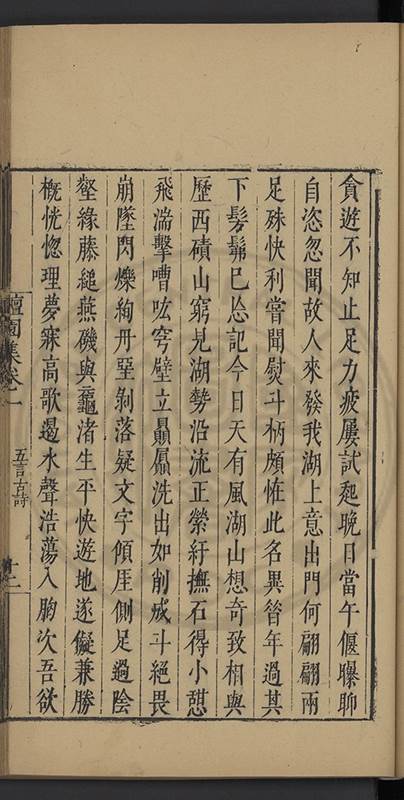 貪遊不知止足力疲屢試起晚日當午偃曝聊
自恣忽聞故人來發我湖上意出門何翩翩兩
足殊快利嘗聞熨斗柄頗恠此名異昔年過其
下髣髴已忘記今日天有風湖山想奇致相與
歷西磧山窮見湖勢沿流正縈紆撫石得小憇
飛湍擊嘈吰穹壁立贔屭洗出如削成斗絕畏
崩墜閃爍絢丹堊剝落疑文字傾厓側足過陰
壑緣藤縋燕磯與黿渚生平快遊地遂儗兼勝
概恍惚理夢寐高歌遏水聲浩蕩入胸次吾欲
檀園集卷一
五言古詩
十二